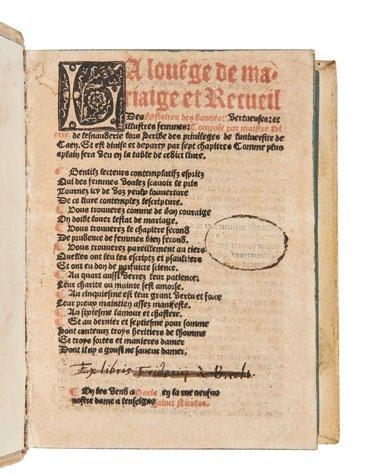 LA louẽge de ma-
riaige et Recueil
Des hystoires des bonnes: Vertueuses: et
illustres femmes: Compose par maistre Pi
erre de lesnauderie lors scribe des privileges de luniversite de
Caen. Et est divise et departy par sept chapitres Comme plus
aplain sera veu en la table de cedict livre.
Gentilz lecteurs contemplatifz espritz
Qui des femmes voulez scavoir le pris
Tournez icy de voz yeulx louverture
De ce livre contemplez lescripture.
Vous trouverez comme de bon couraige
On doibt louer lestat de mariage.
Vous trouverez le chapitre second
De prudence de femmes bien fecond.
Vous trouverez pareillement au tiers
Quelles ont leu les escriptz et psaultiers
Et ont eu don de parfaicte science.
Au quart aussi verrez leur patience:
Leur charite ou mainte sest amuse.
Au cinquiesme est leur grant vertu et force
Leur preux maintien assez manifeste.
Au sixiesme lamour et chastete.
Et au dernier et septiesme pour somme
Sont contenuz troys heritiers de lhomme
Et troys sortes et manieres damer
Dont il ny a goust ne saveur damer.
Ex libris
On les vend a Paris en la rue neufve
nostre dame a lenseigne sainct Nicolas.